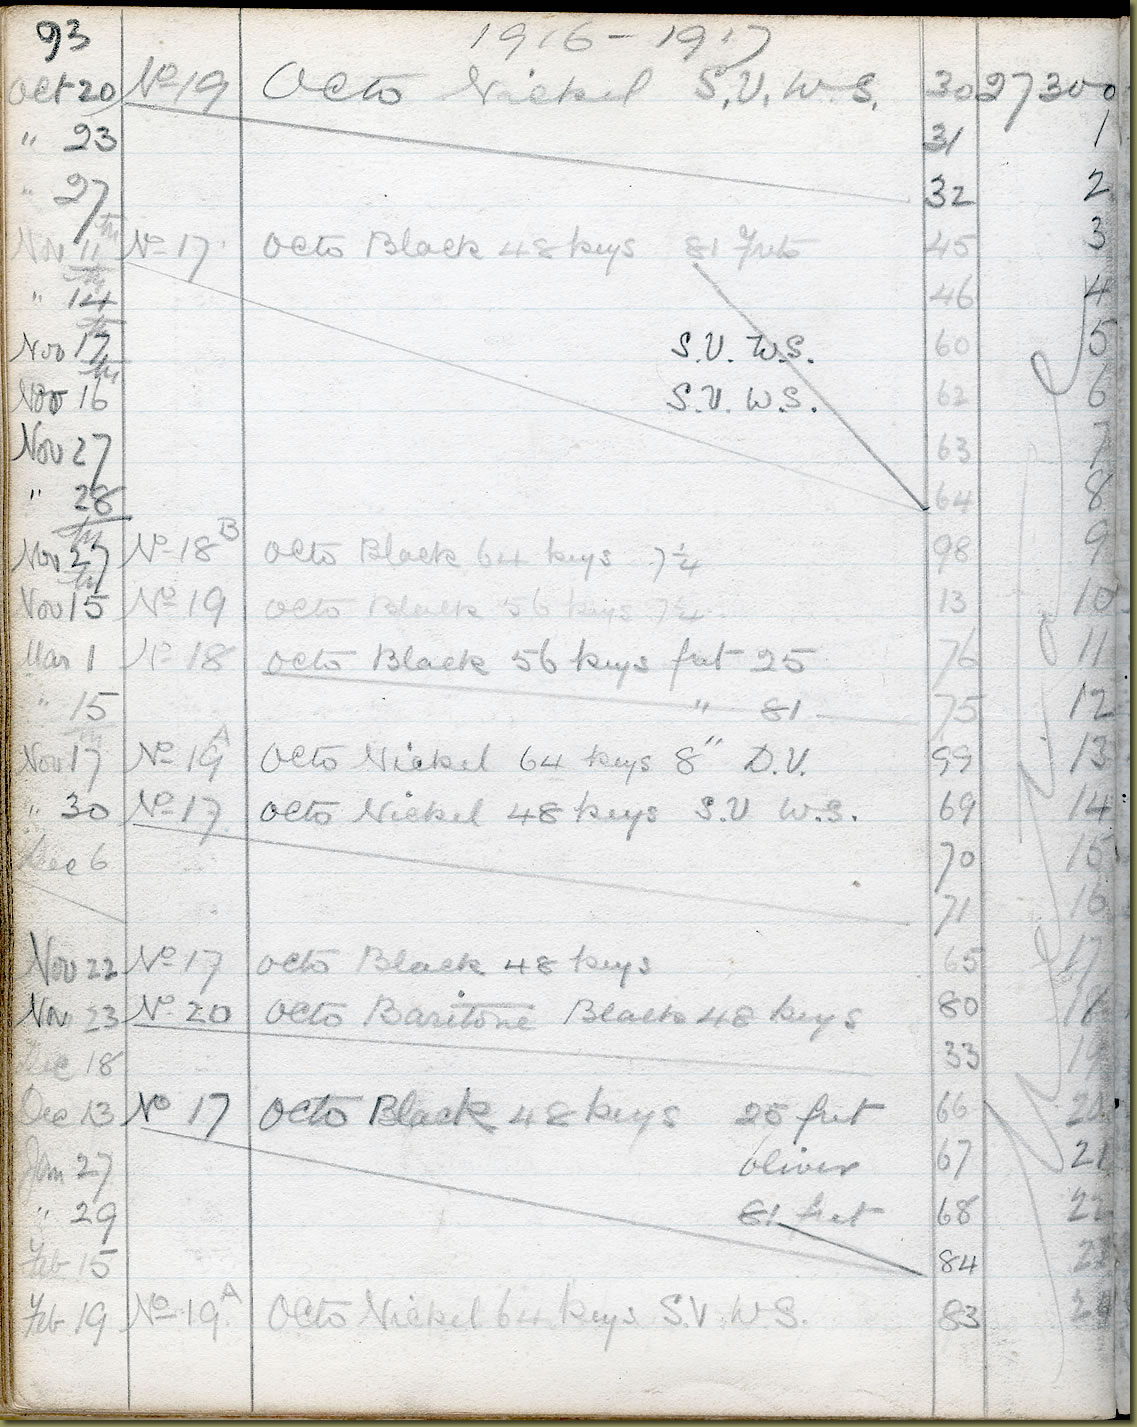 93 1916-1917
Oct 20 No 19 Octo Nickel S.V. W.S. 30 27300
" 23 31 1
" 27th 32 2
Nov 11th No 17 Octo Black 48 keys 81 frets 45 3
" 14th 46 4
Nov 17th S.V. W.S. 60 5
Nov 16 S.V. W.S. 62 6
Nov 27 63 7
" 28th 64 8
Nov 27th No 18B Octo Black 64 keys 7¼ 98 9
Nov 15 No 19 Octo Black 56 keys 7¼ 13 10
Mar 1 No 18 Octo Black 56 keys fret 25 76 11
" 15th " 81 75 12
Nov 17 No 19A Octo Nickel 64 keys 8" D.V. 99 13
" 30 No 17 Octo Nickel 48 keys S.V W.S. 69 14
Dec 6 70 15
71 16
Nov 22 No 17 Octo Black 48 keys 65 17
Nov 23 No 20 Octo Baritone Black 48 keys 80 18
Dec 18 33 19
Dec 13 No 17 Octo Black 48 keys 25 fret 66 20
Jan 27 Oliver 67 21
" 29 81 fret 68 22
Feb 15 84 23
Feb 19 No 19A Octo Nickel 64 keys S.V. W.S. 83 24